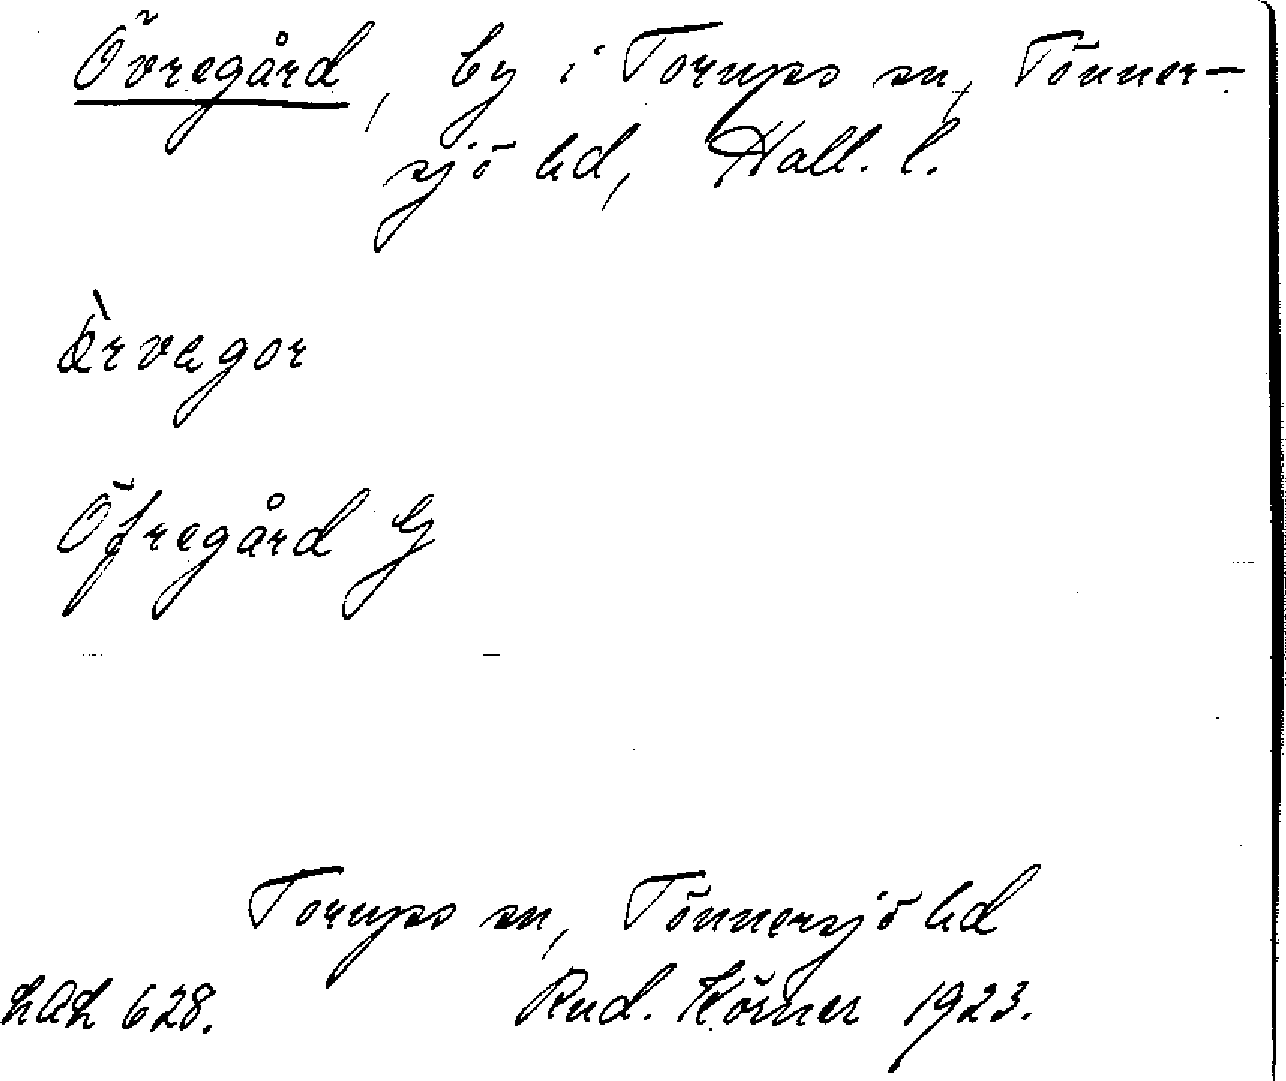 Övregård, by i Torups sn, Tönner-
sjö hd, Hall. l.
Öfregård G
Torups sn, Tönnersjö hd
LAL 628. Rud. Körner 1923.